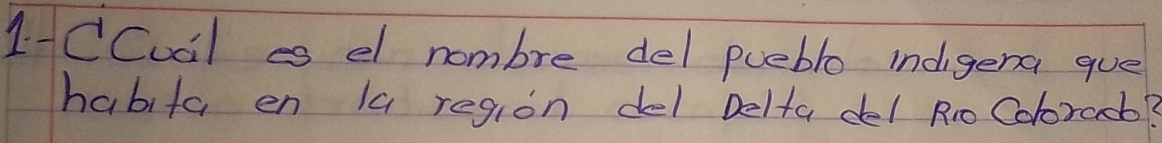 1.- ¿Cuál es el nombre del pueblo indigena que
habita en la región del Delta del Rio Colorado?